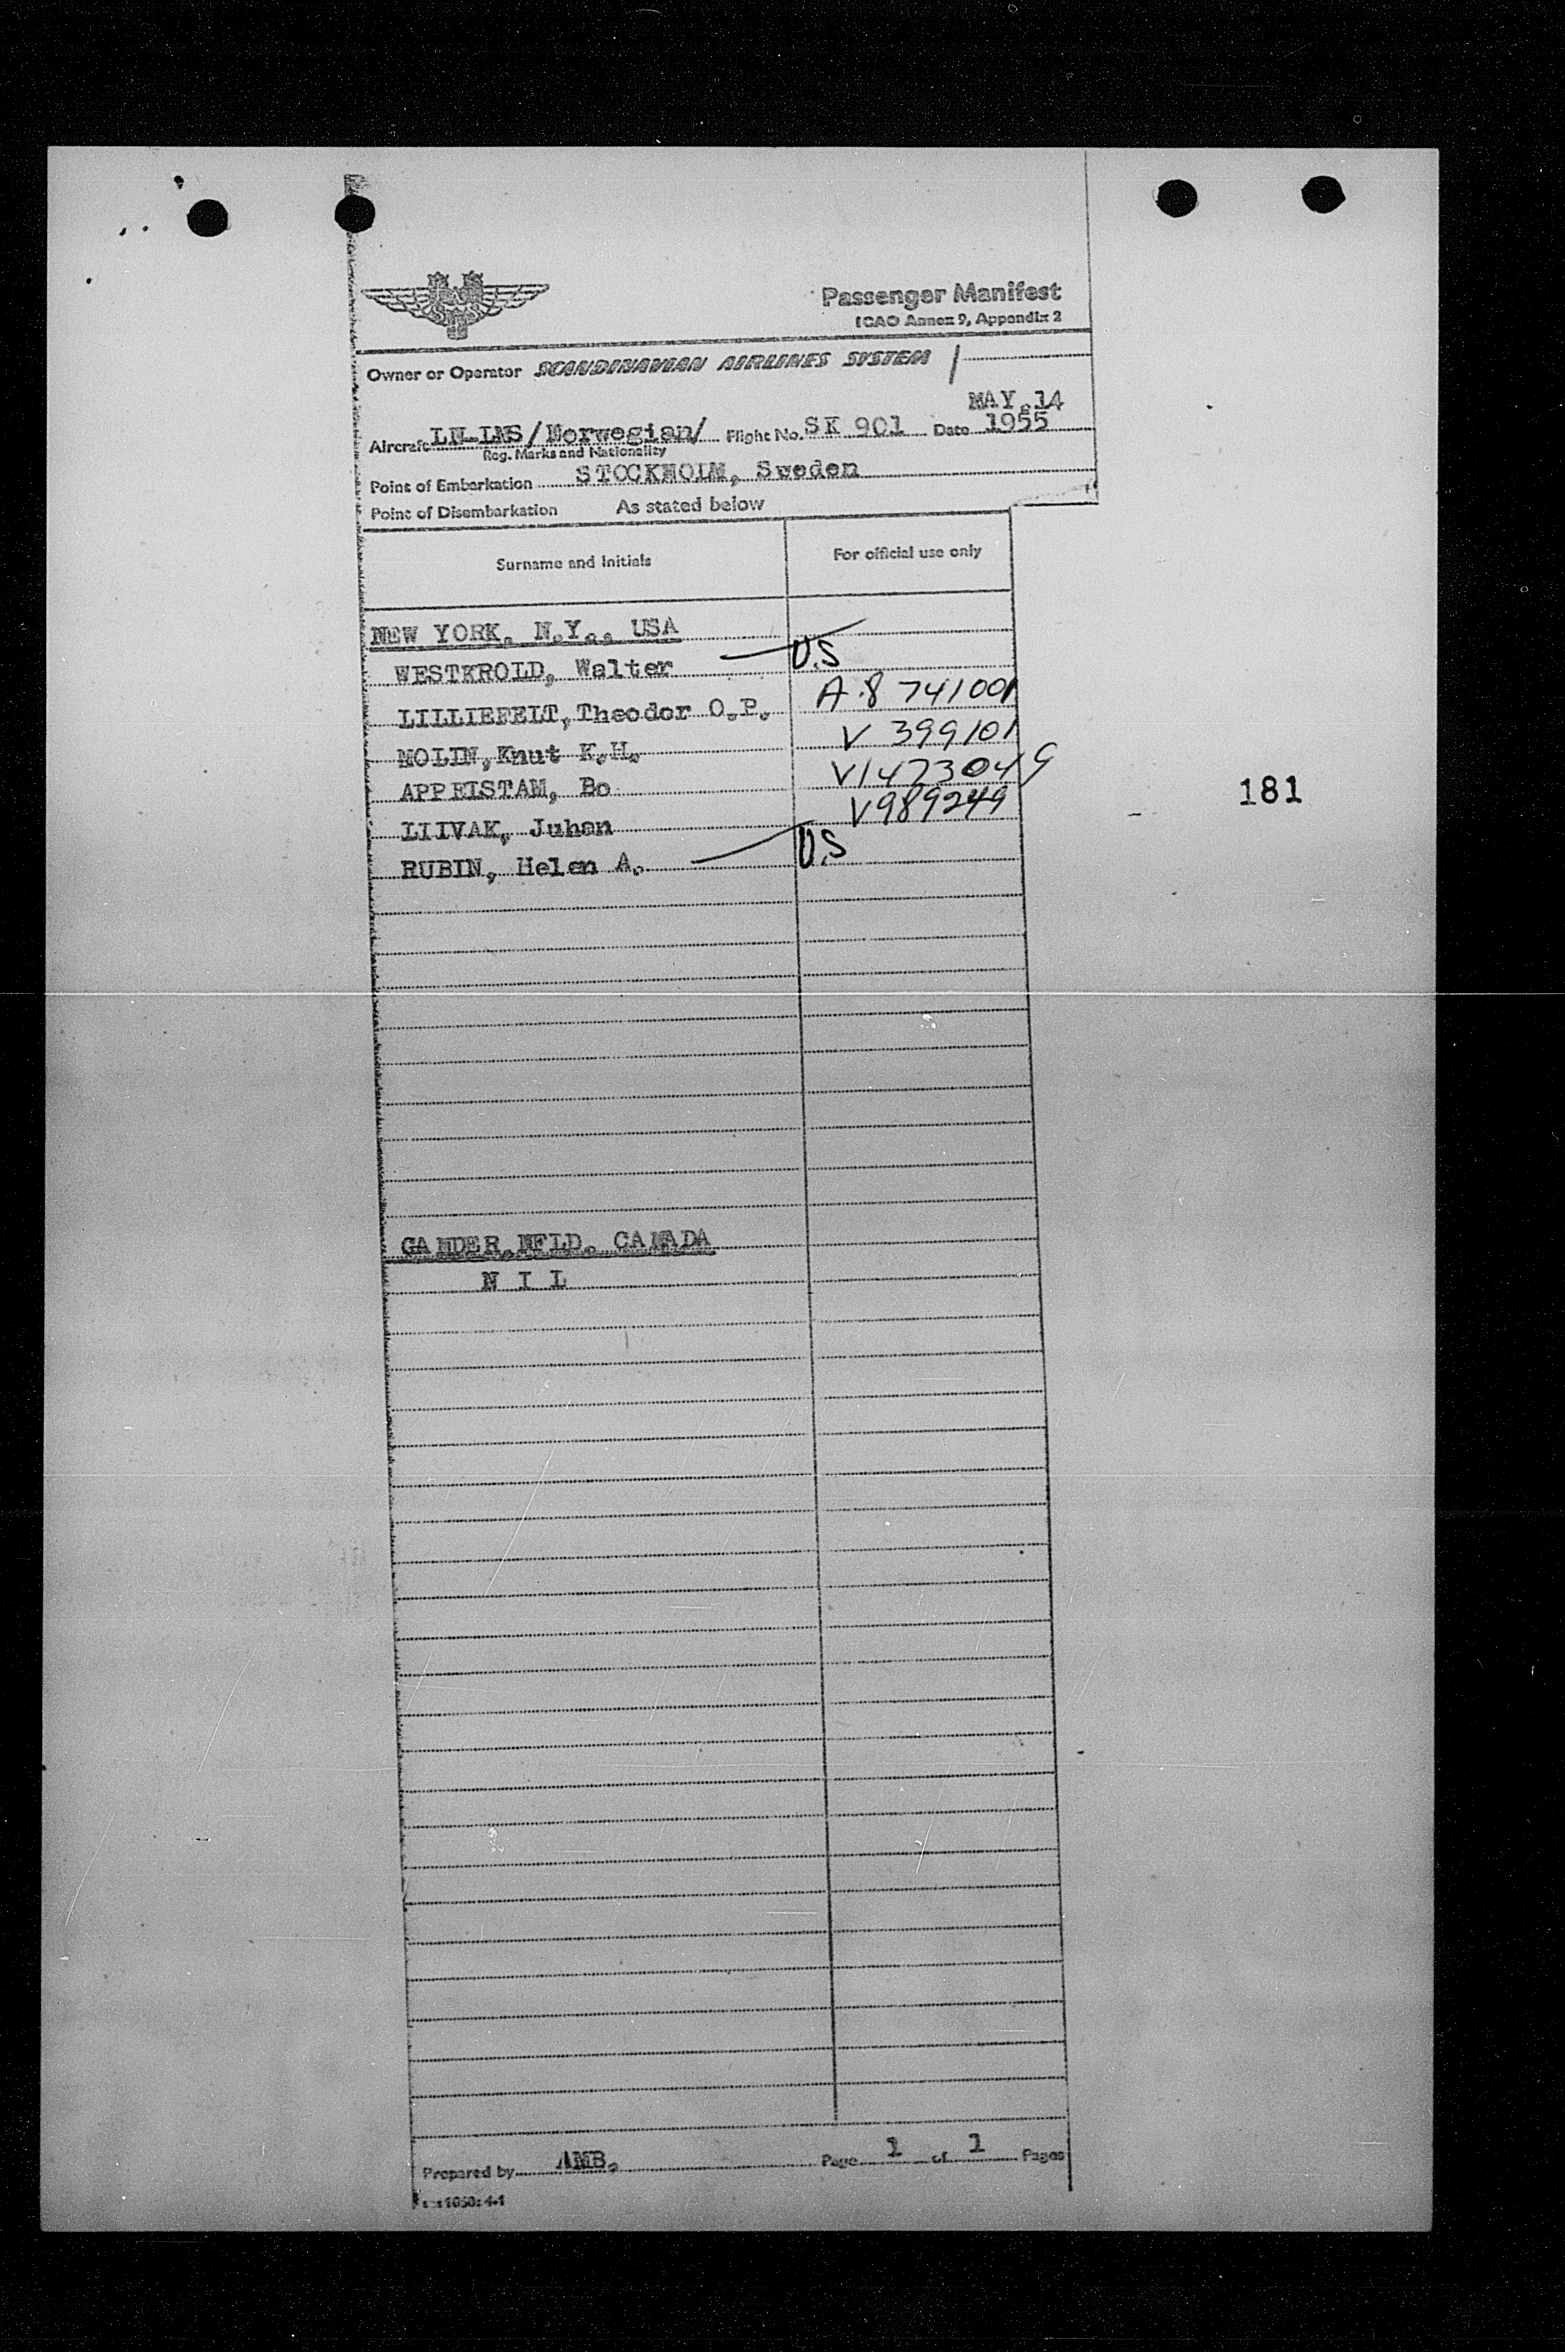 Passenger Manifest
ICAO Annex 9, Appendix 2
Owner or Operator SCANDINAVIAN AIRLINES SYSTEM
MAY.14
Aircraft LN-LMS/Norwegian/ Flight No. SK 901 Date 1955
Reg. Marks and Nationality
Point of Embarkation STOCKHOLM, Sweden
Point of Disembarkation As stated below
Surname and Initials For official use only
NEW YORK, N.Y., USA
WESTKROLD, Walter U.S
LILLIEFELT, Theodor O.P. A.8 741001
MOLIN, Knut K.H. V 399101
APPELSTAM, Bo V1473049
LIIVAK, Juhan V989249
RUBIN, Helen A. U.S
181
GANDER, NFLD. CANADA
N I L
Prepared by AMB. Page 1 of 1 Pages